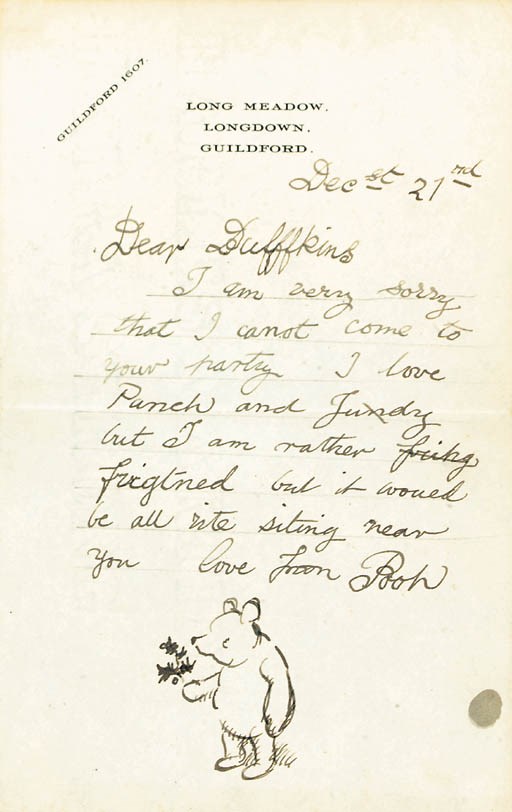 GUILDFORD 1607.
LONG MEADOW,
LONGDOWN,
GUILDFORD.
Dec st 21 nd
Dear Dufffkins
I am verry sorry
that I canot come to
your party I love
Punch and Jundy
but I am rather
frigtned but it woued
be all rite siting near
you love from Pooh